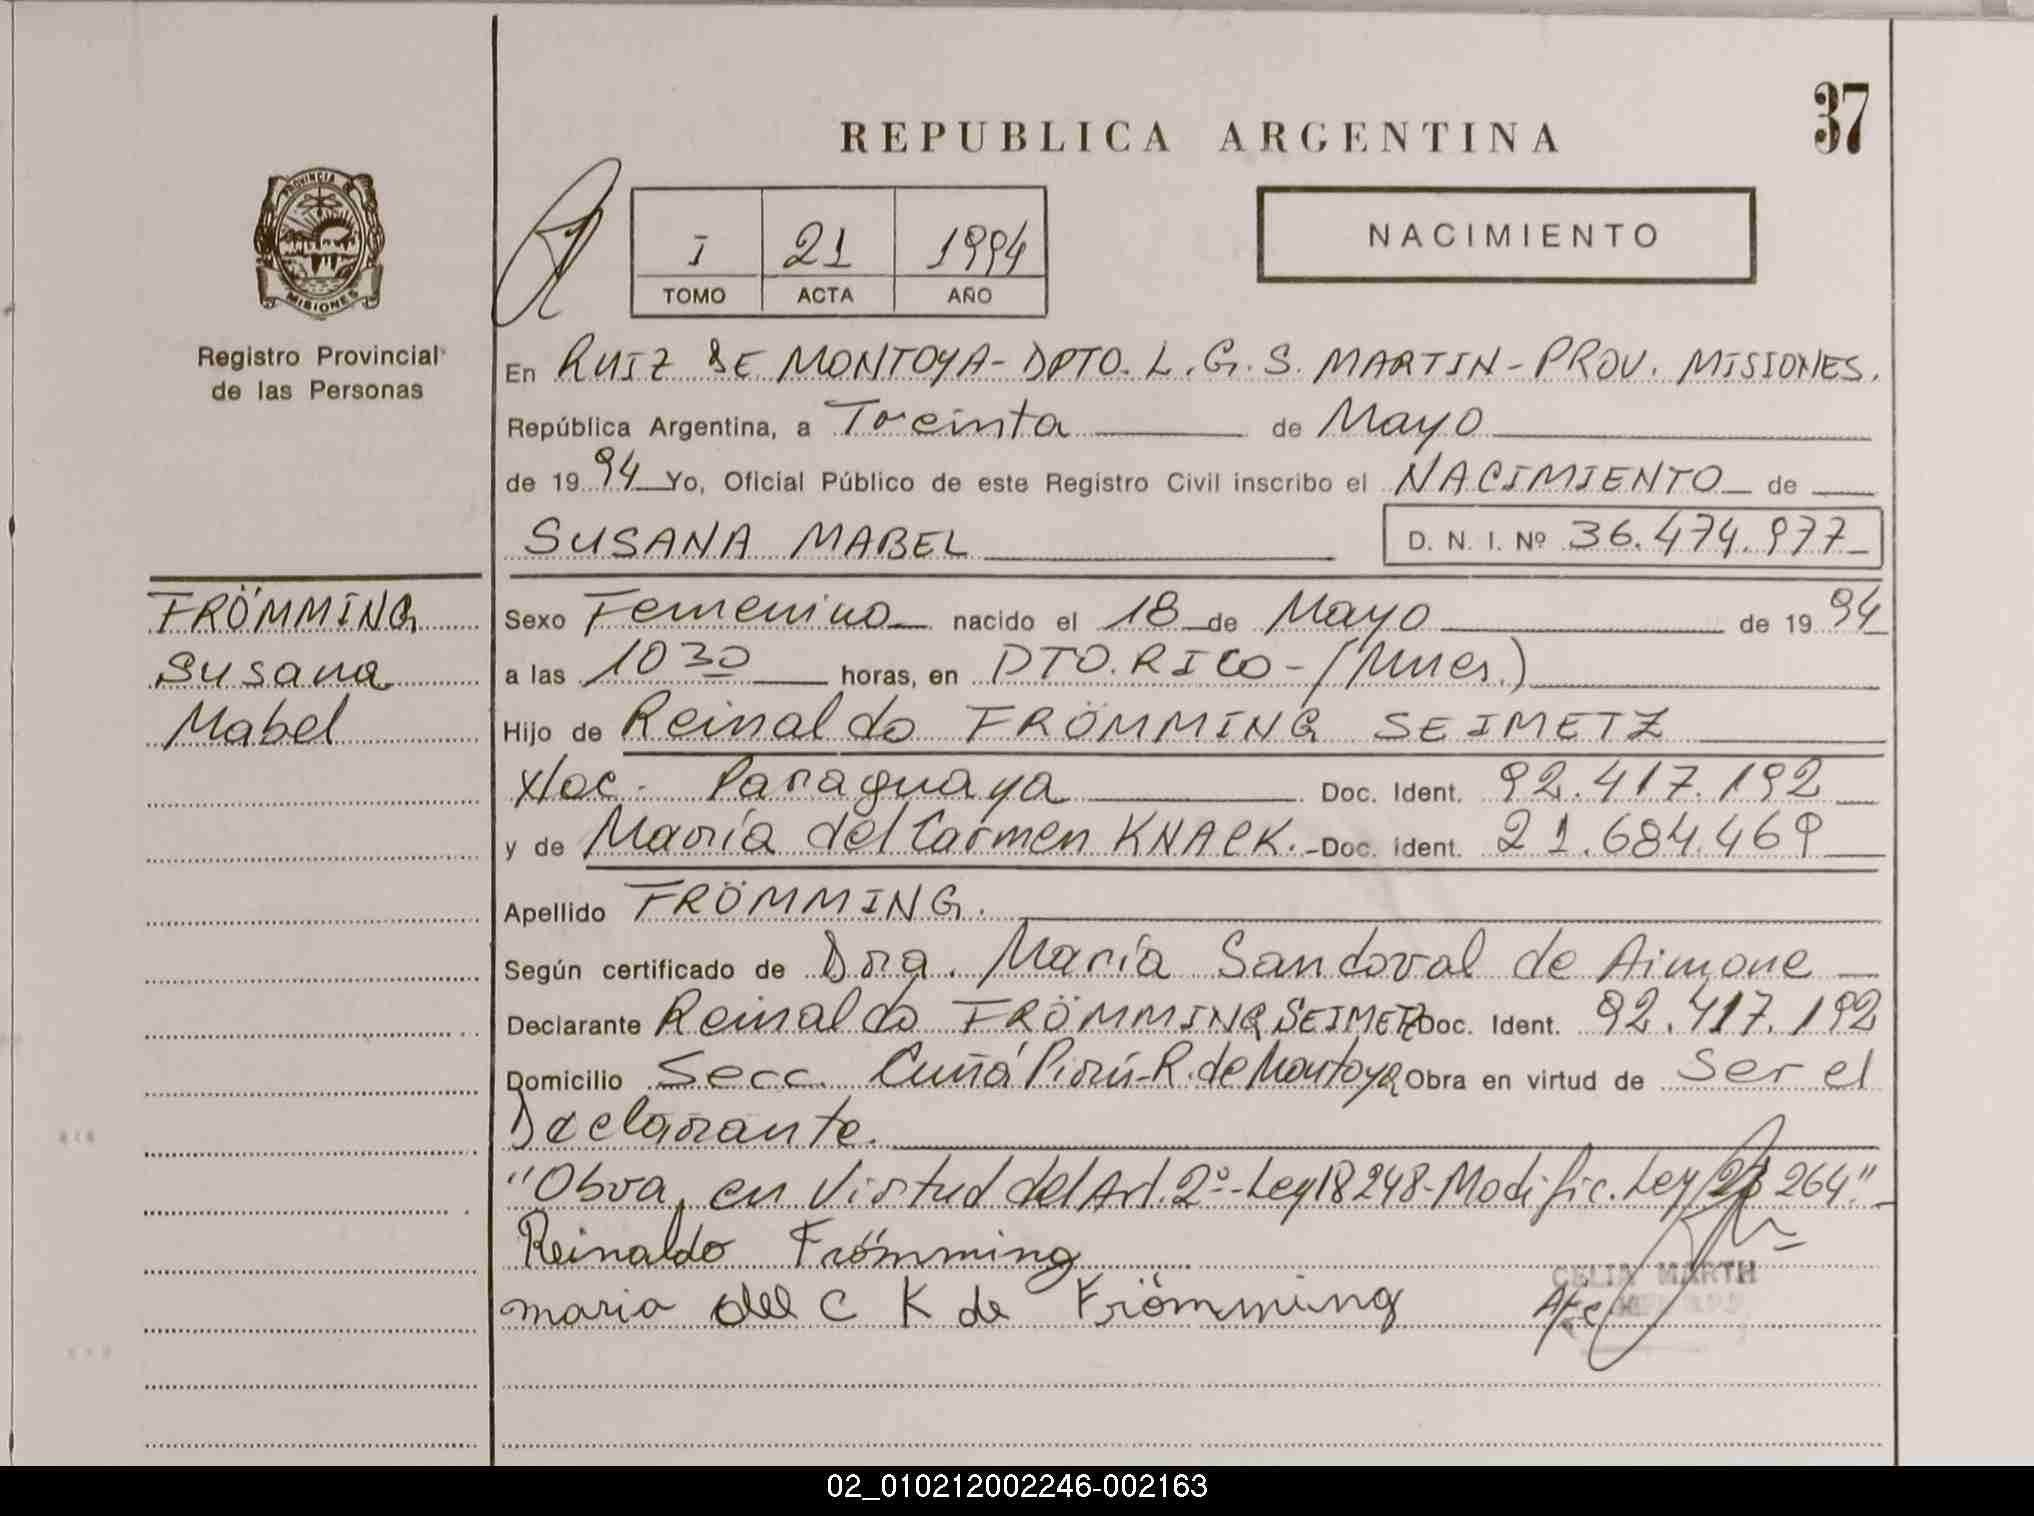 37
REPUBLICA ARGENTINA
PROVINCIA DE
MISIONES
Registro Provincial
de las Personas
I 21 1994
TOMO ACTA AÑO
NACIMIENTO
En RUIZ DE MONTOYA - DPTO. L. G. S. MARTIN - PROV. MISIONES.
República Argentina, a Treinta de Mayo
de 1994 Yo, Oficial Público de este Registro Civil inscribo el NACIMIENTO de
SUSANA MABEL D. N. I. Nº 36.474.977
FRÖMMING
Susana
Mabel
Sexo Femenino nacido el 18 de Mayo de 1994
a las 10 30 horas, en PTO. RICO - (Mnes.)
Hijo de Reinaldo FRÖMMING SEIMETZ
Nac. Paraguaya Doc. Ident. 92.417.192
y de María del Carmen KNACK. - Doc. ident. 21.684.469
Apellido FRÖMMING.
Según certificado de Dra. María Sandoval de Aimone
Declarante Reinaldo FRÖMMING SEIMETZ Doc. Ident. 92.417.192
Domicilio Secc. Cuñá Pirú - R. de Montoya Obra en virtud de Ser el
Declarante.
"Obra, en Virtud del Art. 2º - Ley 18248 - Modific. Ley 23264"
Reinaldo Frömming
maria del C K de Frömming
CELIA MARTH
02_010212002246-002163